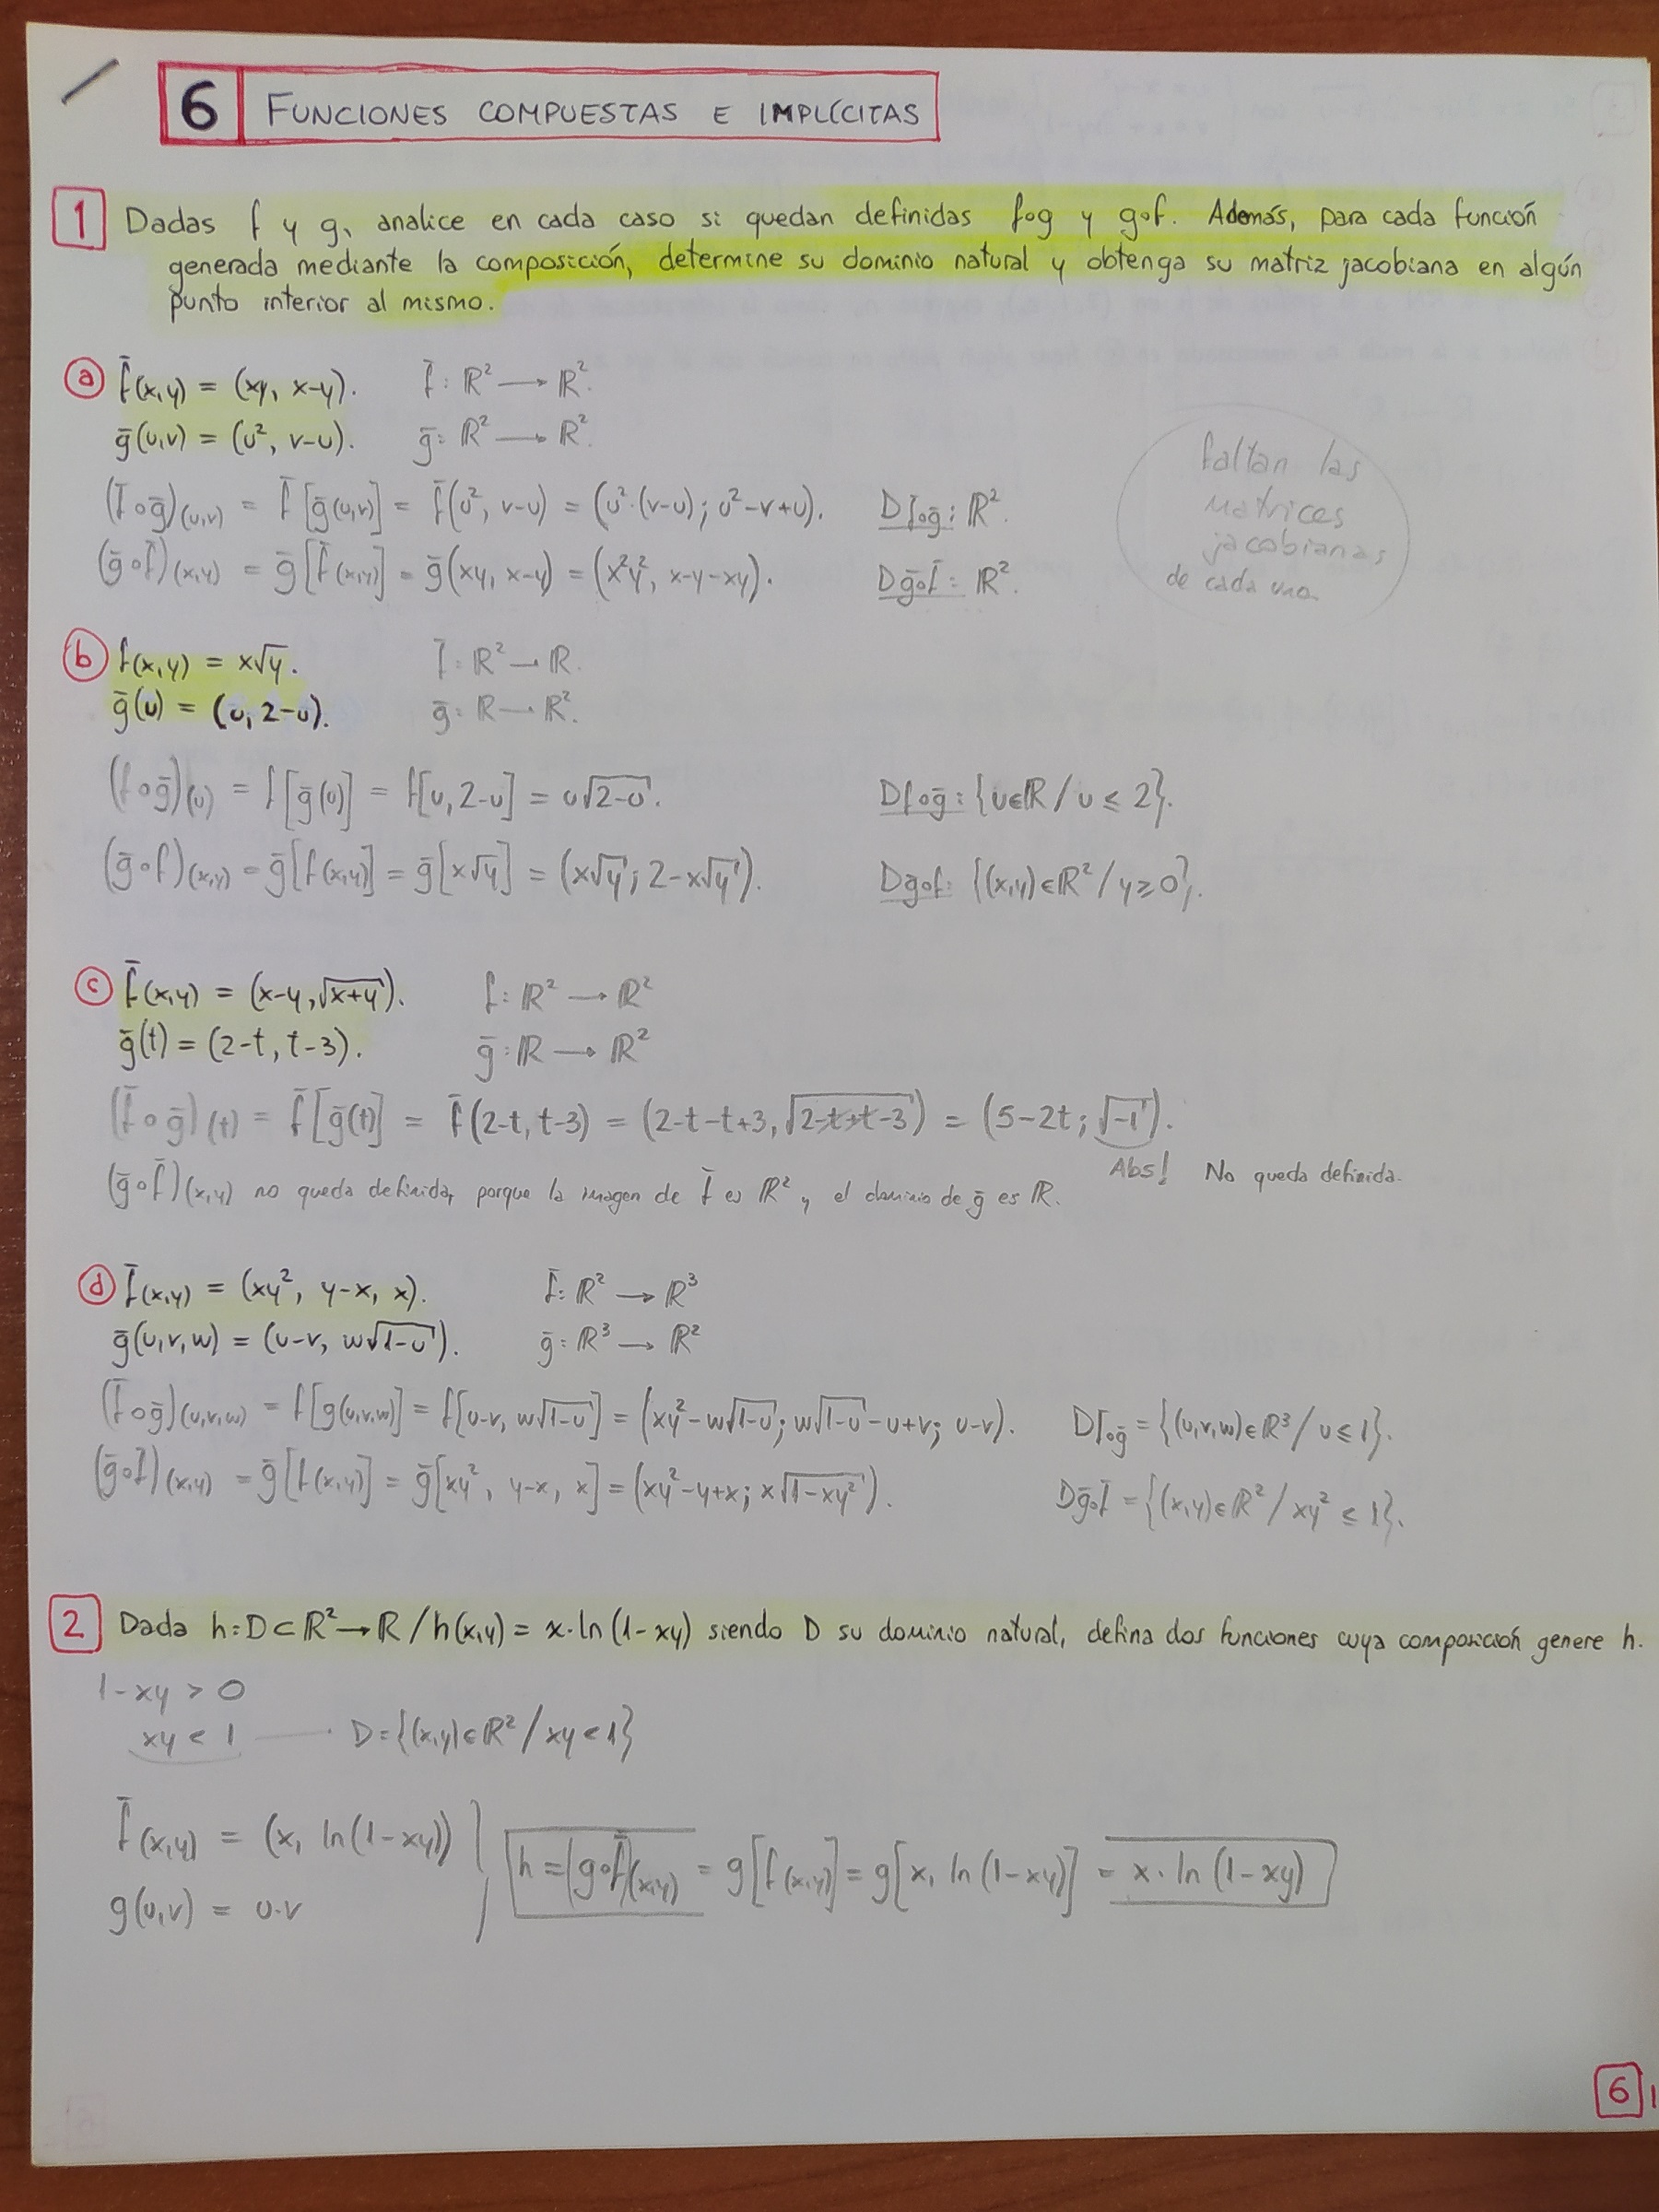 6 FUNCIONES COMPUESTAS E IMPLÍCITAS
1 Dadas f y g, analice en cada caso si quedan definidas f∘g y g∘f. Además, para cada función
generada mediante la composición, determine su dominio natural y obtenga su matriz jacobiana en algún
punto interior al mismo.
a f̄(x,y) = (xy, x-y). f̄: ℝ² → ℝ².
ḡ(u,v) = (u², v-u). ḡ: ℝ² → ℝ².
faltan las
matrices
jacobianas
de cada una
(f̄∘ḡ)(u,v) = f̄[ḡ(u,v)] = f̄(u², v-u) = (u²·(v-u); u²-v+u). Df̄∘ḡ: ℝ².
(ḡ∘f̄)(x,y) = ḡ[f̄(x,y)] = ḡ(xy, x-y) = (x²y², x-y-xy). Dḡ∘f̄: ℝ².
b f(x,y) = x√y. f̄: ℝ² → ℝ.
ḡ(u) = (u, 2-u). ḡ: ℝ → ℝ².
(f∘ḡ)(u) = f[ḡ(u)] = f[u, 2-u] = u√(2-u). Df∘ḡ: {u∈ℝ / u ≤ 2}.
(ḡ∘f)(x,y) = ḡ[f(x,y)] = ḡ[x√y] = (x√y; 2-x√y). Dḡ∘f: {(x,y)∈ℝ² / y ≥ 0}.
c f̄(x,y) = (x-y, √(x+y)). f: ℝ² → ℝ²
ḡ(t) = (2-t, t-3). ḡ: ℝ → ℝ²
(f̄∘ḡ)(t) = f̄[ḡ(t)] = f̄(2-t, t-3) = (2-t-t+3, √(2-t+t-3)) = (5-2t; √-1).
Abs! No queda definida.
(ḡ∘f̄)(x,y) no queda definida, porque la imagen de f̄ es ℝ² y el dominio de ḡ es ℝ.
d f̄(x,y) = (xy², y-x, x). f̄: ℝ² → ℝ³
ḡ(u,v,w) = (u-v, w√(1-u)). ḡ: ℝ³ → ℝ²
(f̄∘ḡ)(u,v,w) = f[g(u,v,w)] = f[u-v, w√(1-u)] = (xy²-w√(1-u); w√(1-u)-u+v; u-v). Df∘ḡ = {(u,v,w)∈ℝ³ / u ≤ 1}.
(ḡ∘f̄)(x,y) = ḡ[f(x,y)] = ḡ[xy², y-x, x] = (xy²-y+x; x√(1-xy²)). Dḡ∘f̄ = {(x,y)∈ℝ² / xy² ≤ 1}.
2 Dada h: D⊂ℝ² → ℝ / h(x,y) = x·ln(1-xy) siendo D su dominio natural, defina dos funciones cuya composición genere h.
1-xy > 0
xy < 1 D = {(x,y)∈ℝ² / xy < 1}
f̄(x,y) = (x, ln(1-xy))
g(u,v) = u·v
h = (g∘f̄)(x,y) = g[f(x,y)] = g[x, ln(1-xy)] = x·ln(1-xy)
6 1